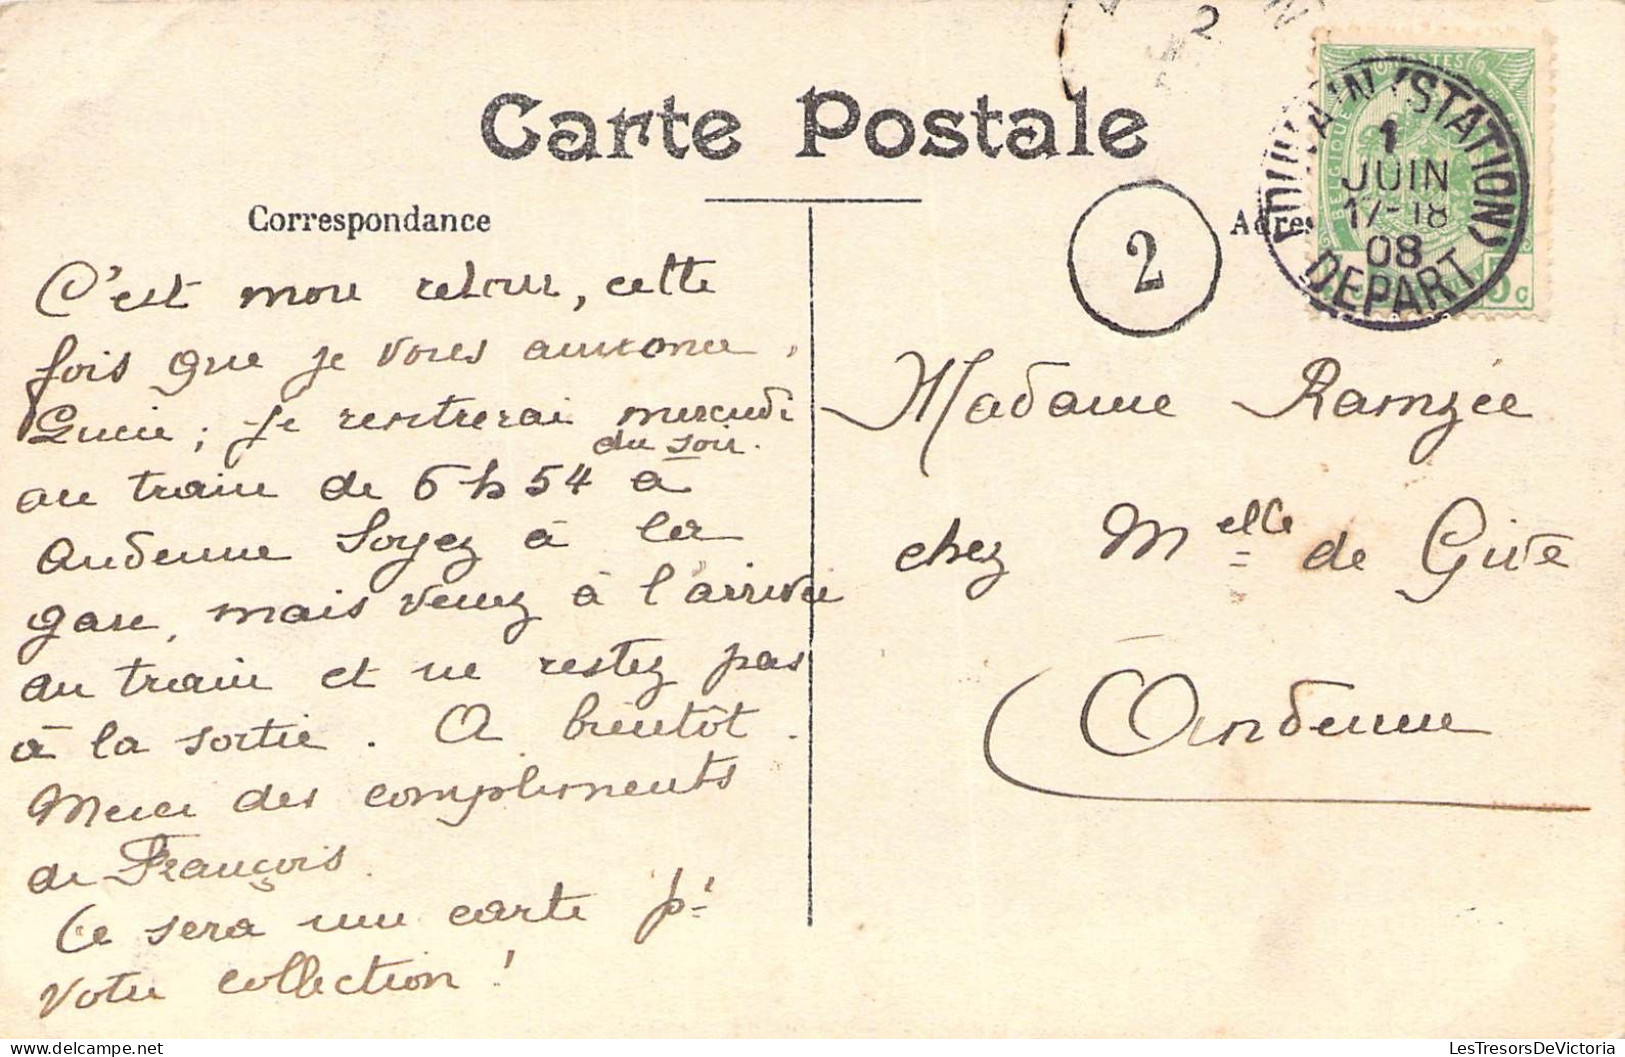 Carte Postale
Correspondance
C'est mon retour, cette
fois que je vous annonce,
; je rentrerai mercredi
du soir.
au train de 6 h 54 à
Andenne Soyez à la
gare, mais venez à l'arrivée
du train et ne restez pas
à la sortie. A bientôt.
Merci des compliments
de François.
Ce sera une carte pr
votre collection!
2
2
N
Adres
(STATION)
1
JUIN
17-18
08
DEPART
POSTES
BELGIQUE
5 c
Madame Ramzée
chez Melle de Give
Andenne
LesTresorsDeVictoria
www.delcampe.net